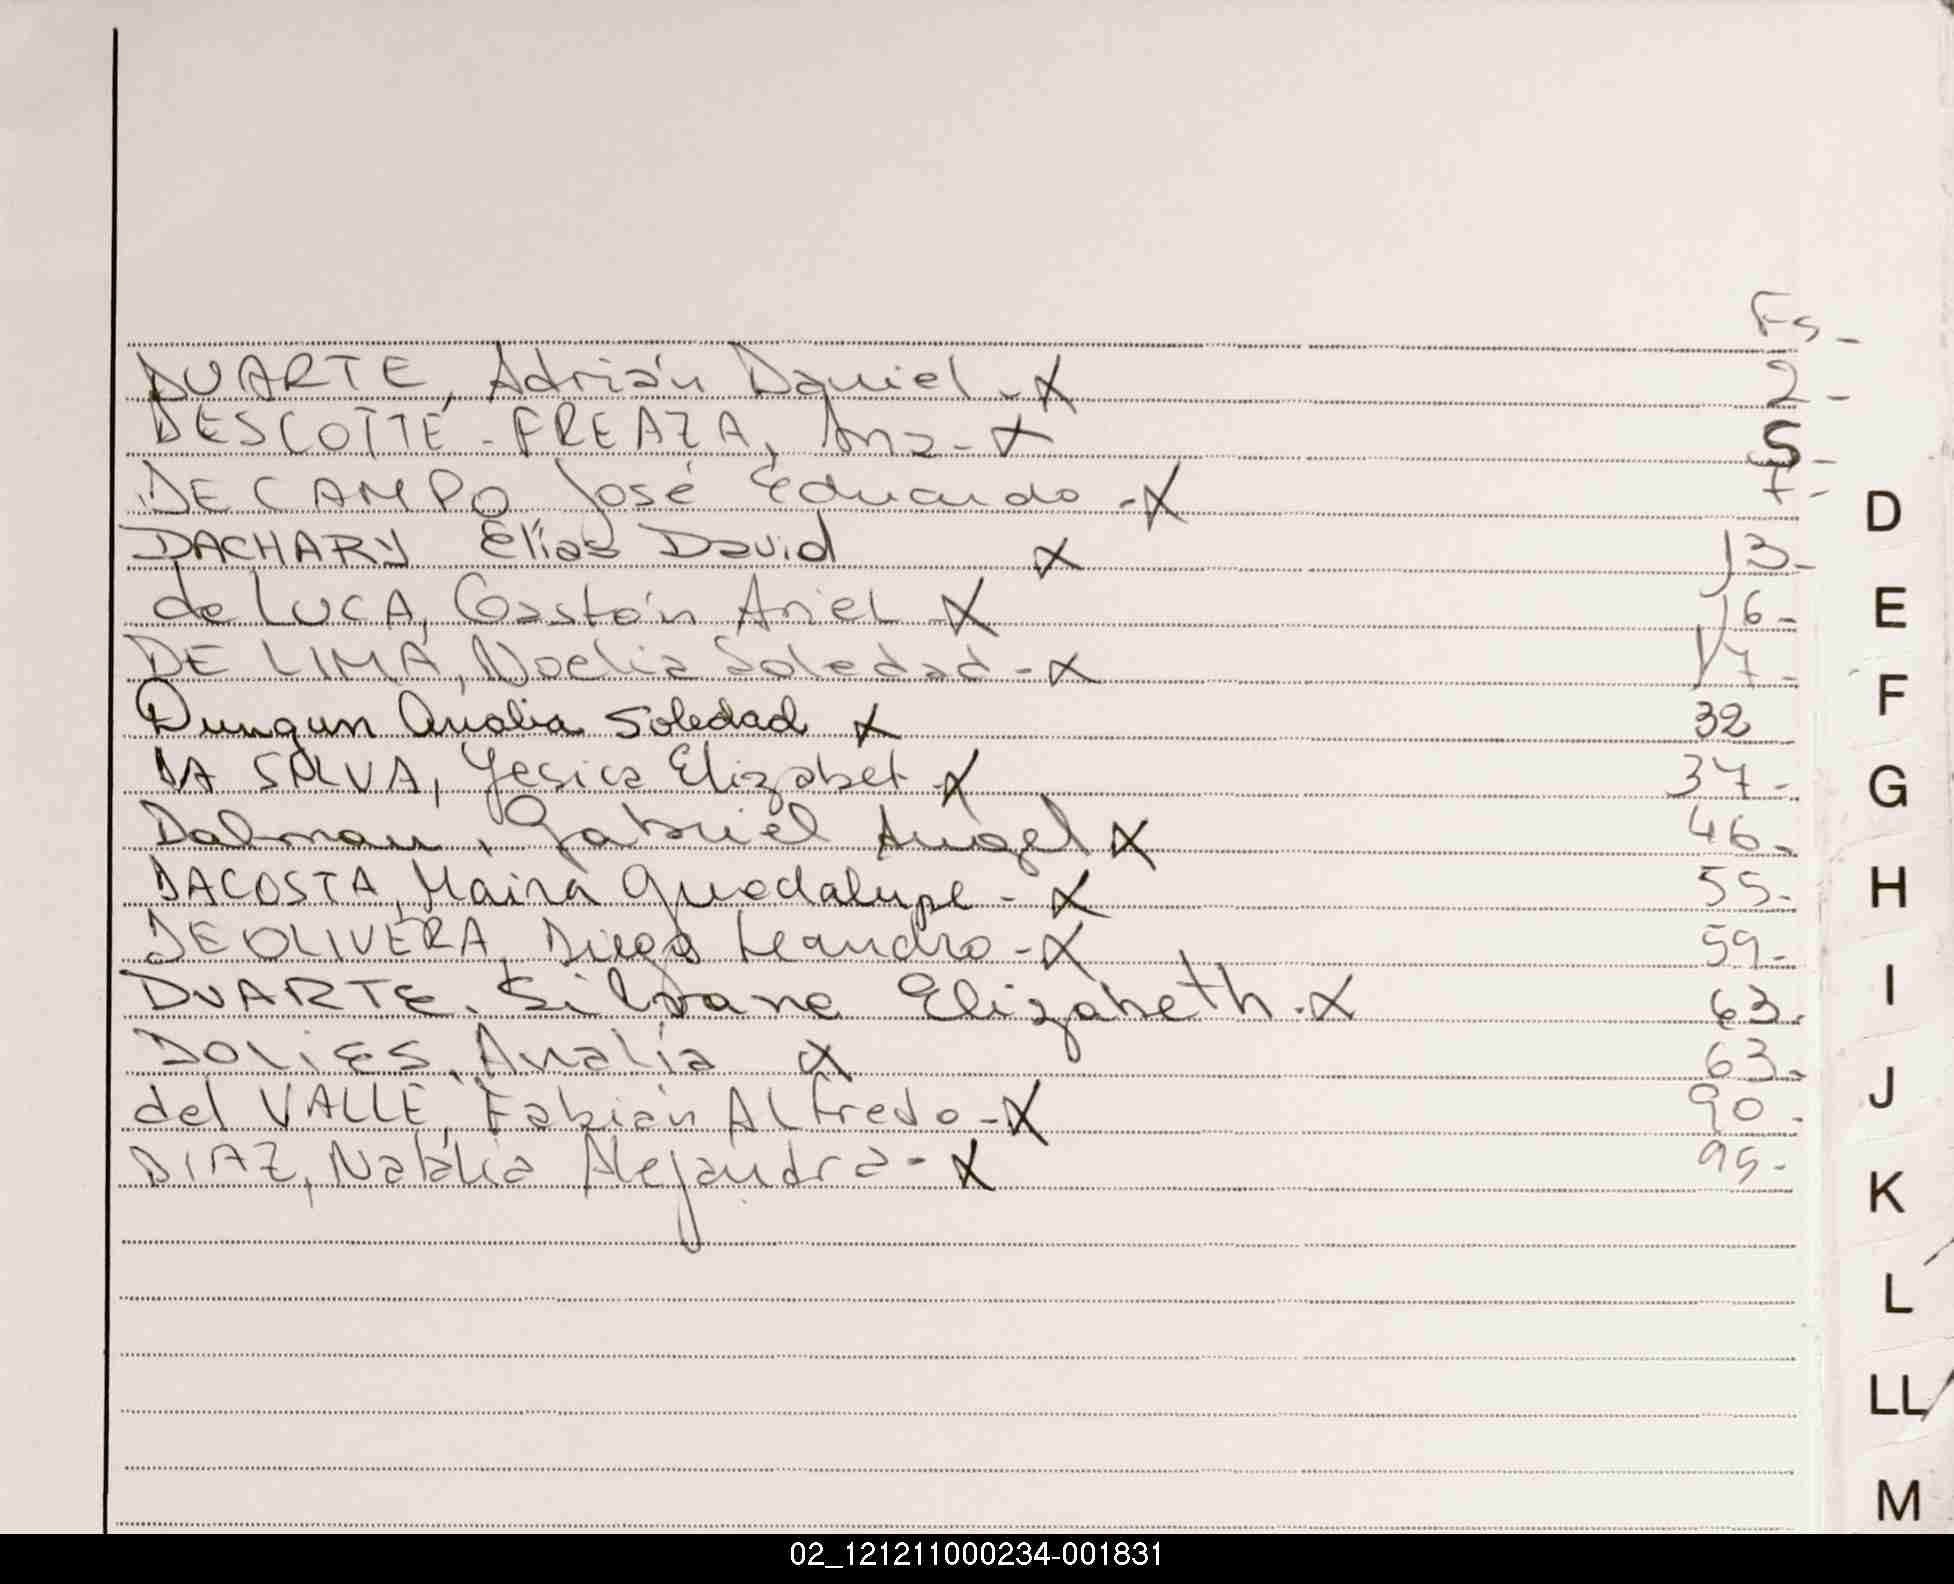 Fs-
DUARTE, Adrián Daniel - X 2-
DESCOTTE - FREAZA, Ana - X 5-
DE CAMPO José Eduardo - X 7-
DACHARY Elías David X 13-
de LUCA, Gastón Ariel - X 16-
DE LIMA, Noelia Soledad - X 17-
Dungun Analia Soledad X 32
DA SALVA, Yesica Elizabet - X 37-
Dalmau, Gabriel Angel X 46-
DACOSTA, Maira Guadalupe - X 55-
DE OLIVERA, Diego Leandro - X 59-
DUARTE, Silvana Elizabeth - X 63-
DOLIES, Analía X 63-
del VALLE, Fabián Alfredo - X 90-
DIAZ, Natalia Alejandra - X 95-
D
E
F
G
H
I
J
K
L
LL
M
02_121211000234-001831